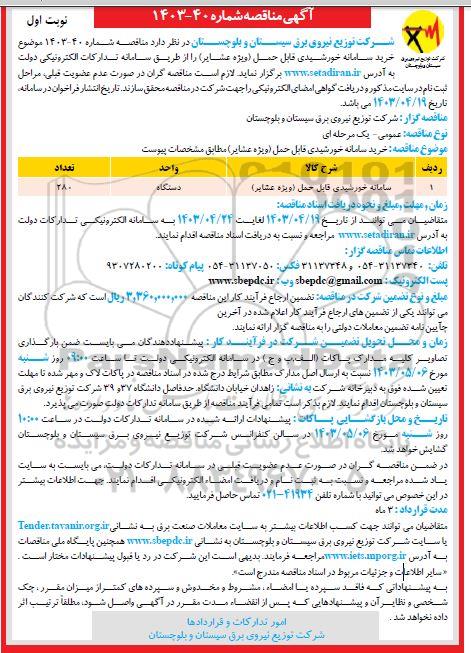 آگهی مناقصه شماره ۴۰-۱۴۰۳
نوبت اول
شرکت توزیع نیروی برق سیستان و بلوچستان در نظر دارد مناقصه شماره ۴۰-۱۴۰۳ موضوع
خرید سامانه خورشیدی قابل حمل (ویژه عشایر) را از طریق سامانه تدارکات الکترونیکی دولت
به آدرس www.setadiran.ir برگزار نماید. لازم است مناقصه گران در صورت عدم عضویت قبلی، مراحل
ثبت نام در سایت مذکور و دریافت گواهی امضای الکترونیکی را جهت شرکت در مناقصه محقق سازند. تاریخ انتشار فراخوان در سامانه،
تاریخ ۱۴۰۳/۰۴/۱۹ می باشد.
شرکت توزیع نیروی برق
سیستان و بلوچستان
مناقصه گزار: شرکت توزیع نیروی برق سیستان و بلوچستان
نوع مناقصه: عمومی- یک مرحله ای
موضوع مناقصه: خرید سامانه خورشیدی قابل حمل (ویژه عشایر) مطابق مشخصات پیوست
ردیف شرح کالا واحد تعداد
۱ سامانه خورشیدی قابل حمل (ویژه عشایر) دستگاه ۲۸۰
زمان و مهلت، مبلغ و نحوه دریافت اسناد مناقصه:
متقاضیان می توانند از تاریخ ۱۴۰۳/۰۴/۱۹ لغایت ۱۴۰۳/۰۴/۲۴ به سامانه الکترونیکی تدارکات دولت
به آدرس www.setadiran.ir مراجعه و نسبت به دریافت اسناد مناقصه اقدام نمایند.
اطلاعات تماس مناقصه گزار:
تلفن: ۳۱۱۳۷۳۴۰-۰۵۴ و ۳۱۱۳۷۳۴۸ فکس: ۳۱۱۳۷۰۵۰-۰۵۴ پیام کوتاه: ۹۳۰۷۲۸۰۲۰۰
پست الکترونیک: sbepdc@gmail.com وب: www.sbepdc.ir
مبلغ و نوع تضمین شرکت در مناقصه: تضمین ارجاع فرآیند کار این مناقصه ۳,۳۶۰,۰۰۰,۰۰۰ ریال است که شرکت کنندگان
می توانند یکی از تضمین های ارجاع فرآیند کار اعلام شده در آخرین
آیین نامه تضمین معاملات دولتی را به مناقصه گزار ارائه نمایند.
زمان و محل تحویل تضمین شرکت در فرآیند کار: پیشنهاددهندگان می بایست ضمن بارگذاری
تصاویر کلیه مدارک پاکات (الف، ب و ج) در سامانه الکترونیکی دولت تا ساعت ۰۹:۰۰ روز شنبه
مورخ ۱۴۰۳/۰۵/۰۶ نسبت به ارسال اصل مدارک مطابق شرایط درج شده در اسناد مناقصه در پاکات لاک و مهر شده تا مهلت
تعیین شده فوق به دبیرخانه شرکت به نشانی: زاهدان خیابان دانشگاه، حدفاصل دانشگاه ۳۷ و ۳۹ شرکت توزیع نیروی برق
سیستان و بلوچستان اقدام نمایند. لازم بذکر است تمامی فرآیند مناقصه از طریق سامانه تدارکات دولت صورت می پذیرد.
تاریخ و محل بازگشایی پاکات: پیشنهادات ارائه شده در سامانه تدارکات دولت در ساعت ۱۰:۰۰
روز شنبه مورخ ۱۴۰۳/۰۵/۰۶ در سالن کنفرانس شرکت توزیع نیروی برق سیستان و بلوچستان
گشایش خواهد شد.
در ضمن مناقصه گران در صورت عدم عضویت قبلی در سامانه تدارکات دولت، می بایست به سایت
یاد شده مراجعه و نسبت به ثبت نام و دریافت امضاء الکترونیکی اقدام نمایند. جهت اطلاعات بیشتر
در این خصوص می توانید با شماره تلفن ۴۱۹۳۴-۰۲۱ تماس حاصل فرمایید.
مدت قرارداد: ۳ ماه
متقاضیان می توانند جهت کسب اطلاعات بیشتر به سایت معاملات صنعت برق به نشانی Tender.tavanir.org.ir
یا سایت شرکت توزیع نیروی برق سیستان و بلوچستان به نشانی www.sbepdc.ir همچنین پایگاه ملی مناقصات
به آدرس www.iets.mporg.ir مراجعه فرمایند. بدیهی است این شرکت در رد یا قبول پیشنهادات مختار است.
« سایر اطلاعات و جزئیات مربوط در اسناد مناقصه مندرج است».
به پیشنهاداتی که فاقد سپرده یا امضاء، مشروط و مخدوش و سپرده های کمتر از میزان مقرر، چک
شخصی و نظایر آن و پیشنهادهایی که پس از انقضاء مدت مقرر در آگهی واصل شود، مطلقاً ترتیب اثر
داده نخواهد شد.
امور تدارکات و قراردادها
شرکت توزیع نیروی برق سیستان و بلوچستان